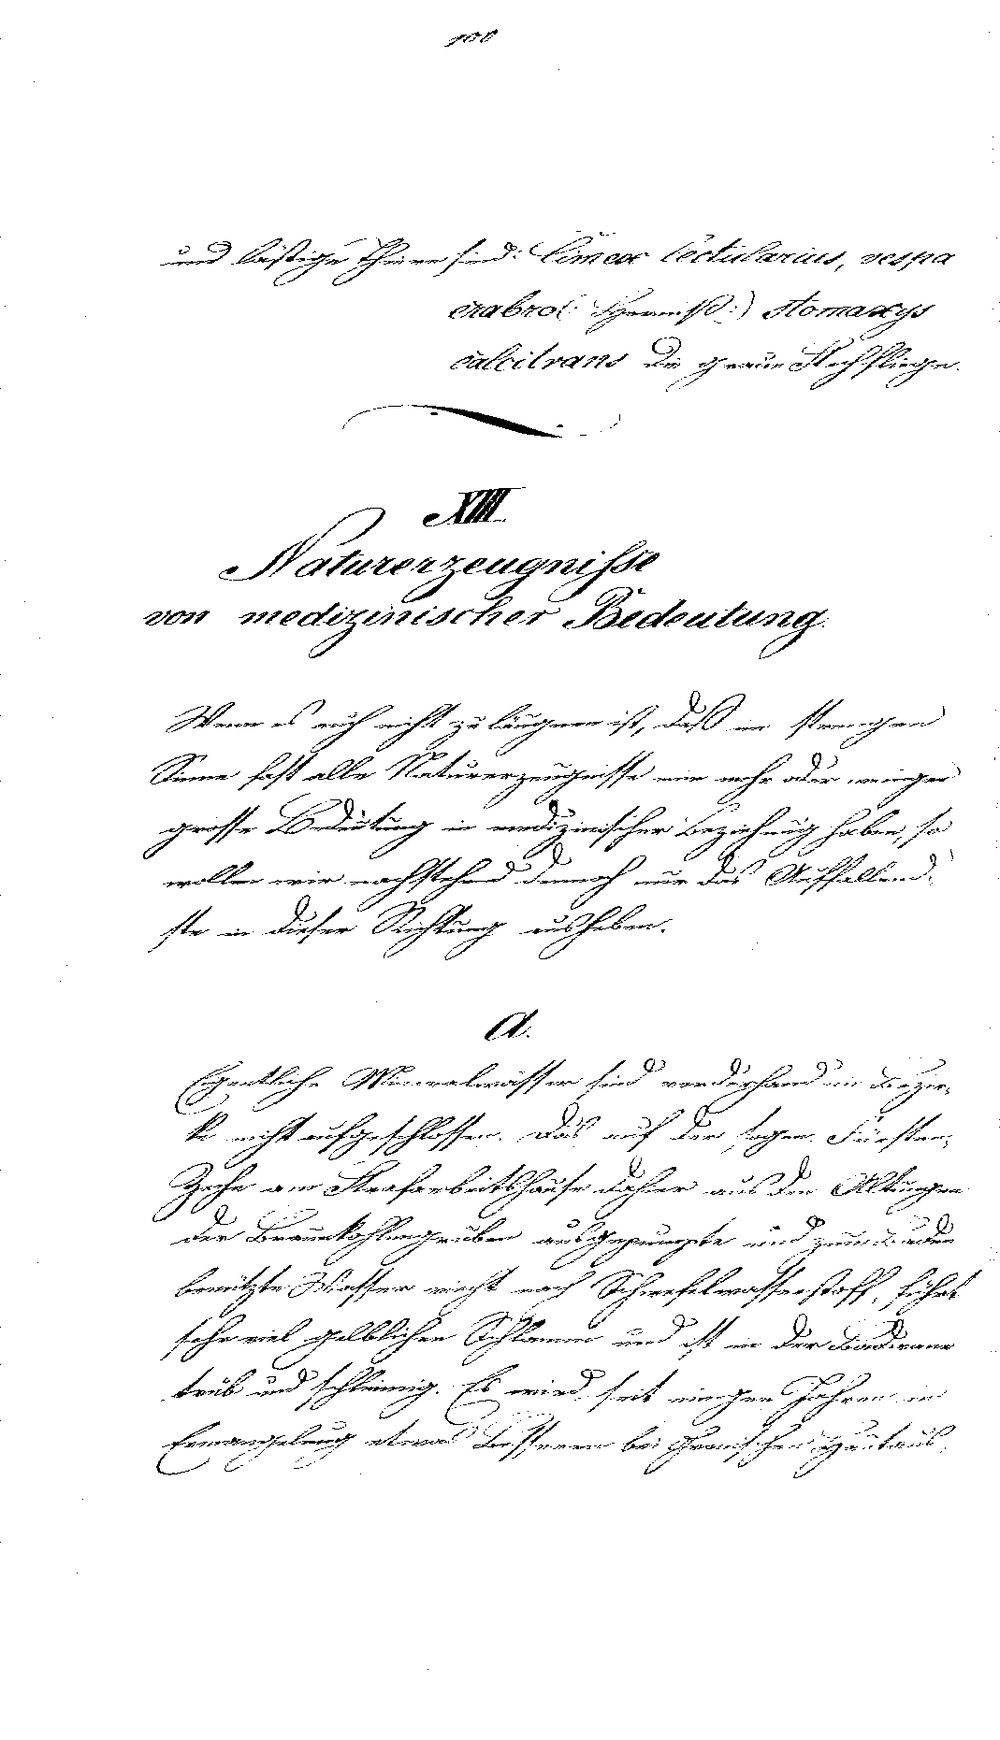 106
und lästige Thiere sind: Cimex lectularius, vespa
crabro (: Hornisß :) stomoxys
calcitrans die graue Stechfliege.
XIII.
Naturerzeugnisse
von medizinischer Bedeutung.
Wenn es auch nicht zu läugnen ist, daß im strengen
Sinne fast alle Naturerzeugnisse eine mehr oder weniger
grosse Bedeutung in medizinischer Beziehung haben, so
wollen wir nachstehend dennoch nur das Auffallend-
ste in dieser Richtung ausheben.
A.
Eigentliche Mineralwässer sind vorderhand im Bezir-
ke nicht aufgeschlossen. Das auf der sogen. Fürsten-
Zeche am Strafarbeitshause dahier aus den Altungen
der Braunkohlengruben ausgepumpte und zum Baden
benützte Wasser riecht nach Schwefelwasserstoff, führt
sehr viel gelblichen Schlamm und ist in der Badwanne
trüb und schleimig. Es wird seit einigen Jahren in
Ermangelung etwas Besseren bei chronischen Hautaus-